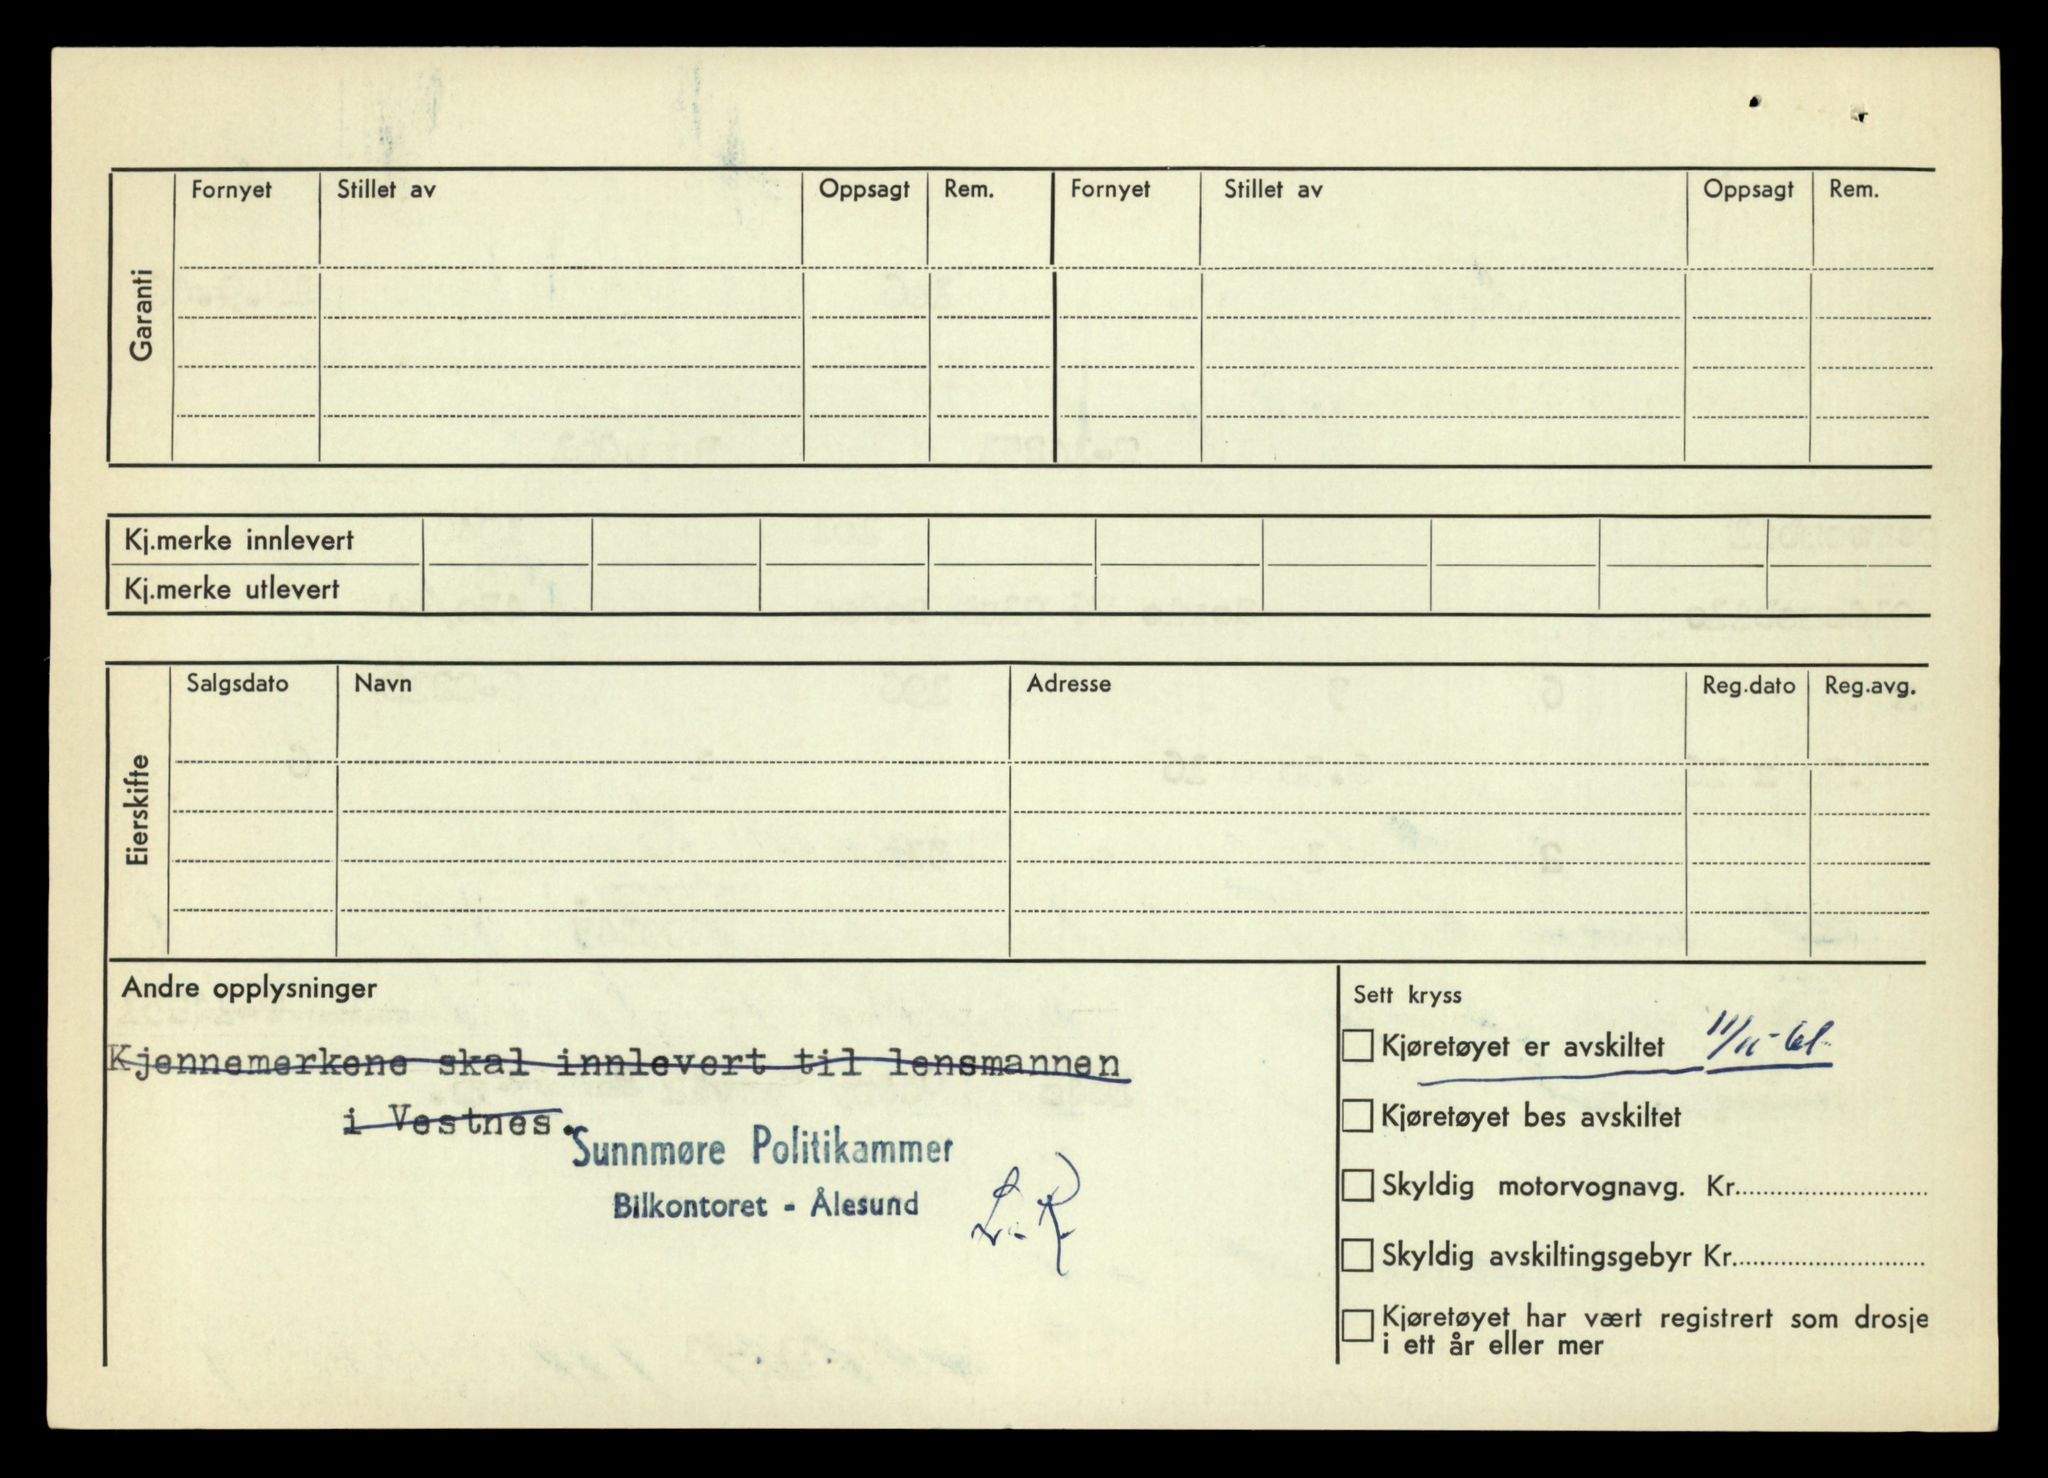 Garanti
Fornyet Stillet av Oppsagt Rem. Fornyet Stillet av Oppsagt Rem.
Kj.merke innlevert
Kj.merke utlevert
Eierskifte
Salgsdato Navn Adresse Reg.dato Reg.avg.
Andre opplysninger
Kjennemerkene skal innlevert til lensmannen
i Vestnes.
Sunnmøre Politikammer
Bilkontoret - Ålesund
L.R.
Sett kryss
Kjøretøyet er avskiltet 11/11-61
Kjøretøyet bes avskiltet
Skyldig motorvognavg. Kr.
Skyldig avskiltingsgebyr Kr.
Kjøretøyet har vært registrert som drosje
i ett år eller mer